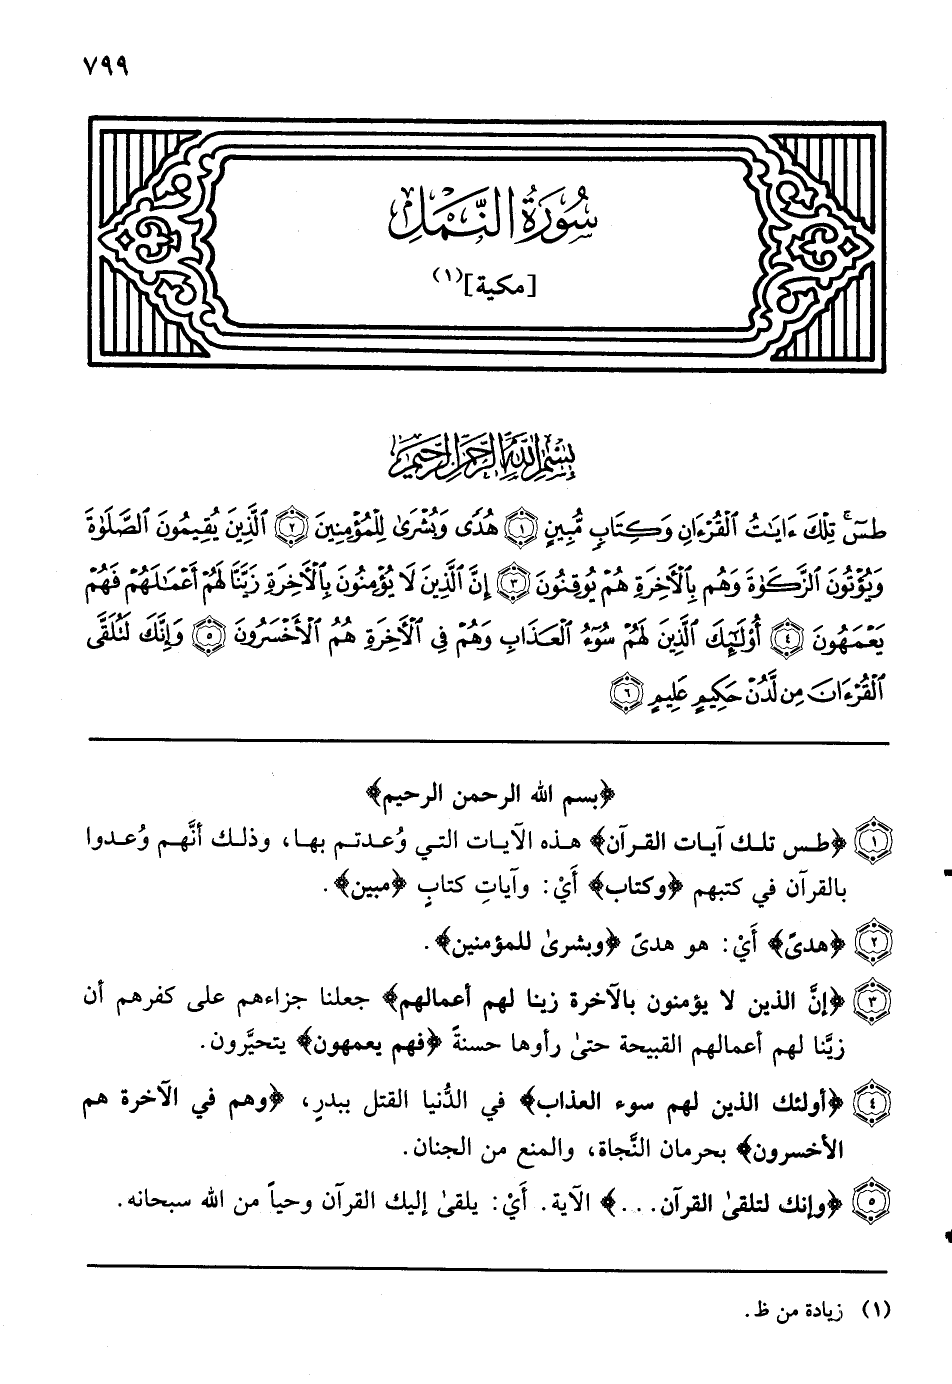 ٧٩٩
سُورَةُ النَّمْلِ
[مكية](١)
بِسْمِ اللَّهِ الرَّحْمَٰنِ الرَّحِيمِ
طسٓ ۚ تِلْكَ ءَايَٰتُ ٱلْقُرْءَانِ وَكِتَابٍ مُّبِينٍ ١ هُدًى وَبُشْرَىٰ لِلْمُؤْمِنِينَ ٢ ٱلَّذِينَ يُقِيمُونَ ٱلصَّلَوٰةَ
وَيُؤْتُونَ ٱلزَّكَوٰةَ وَهُم بِٱلْأَخِرَةِ هُمْ يُوقِنُونَ ٣ إِنَّ ٱلَّذِينَ لَا يُؤْمِنُونَ بِٱلْأَخِرَةِ زَيَّنَّا لَهُمْ أَعْمَٰلَهُمْ فَهُمْ
يَعْمَهُونَ ٤ أُوْلَٰٓئِكَ ٱلَّذِينَ لَهُمْ سُوٓءُ ٱلْعَذَابِ وَهُمْ فِى ٱلْأَخِرَةِ هُمُ ٱلْأَخْسَرُونَ ٥ وَإِنَّكَ لَتُلَقَّى
ٱلْقُرْءَانَ مِن لَّدُنْ حَكِيمٍ عَلِيمٍ ٦
﴿بسم الله الرحمن الرحيم﴾
١ ﴿طس تلك آيات القرآن﴾ هذه الآيات التي وُعدتم بها، وذلك أنَّهم وُعدوا
بالقرآن في كتبهم ﴿وكتاب﴾ أَيْ: وآياتِ كتابٍ ﴿مبين﴾.
٢ ﴿هدىً﴾ أَيْ: هو هدىً ﴿وبشرىٰ للمؤمنين﴾.
٣ ﴿إنَّ الذين لا يؤمنون بالآخرة زينا لهم أعمالهم﴾ جعلنا جزاءهم على كفرهم أن
زيَّنا لهم أعمالهم القبيحة حتىٰ رأوها حسنةً ﴿فهم يعمهون﴾ يتحيَّرون.
٤ ﴿أولئك الذين لهم سوء العذاب﴾ في الدُّنيا القتل ببدرٍ، ﴿وهم في الآخرة هم
الأخسرون﴾ بحرمان النَّجاة، والمنع من الجنان.
٥ ﴿وإنك لتلقىٰ القرآن...﴾ الآية. أَيْ: يلقىٰ إليك القرآن وحياً من الله سبحانه.
(١) زيادة من ظ.